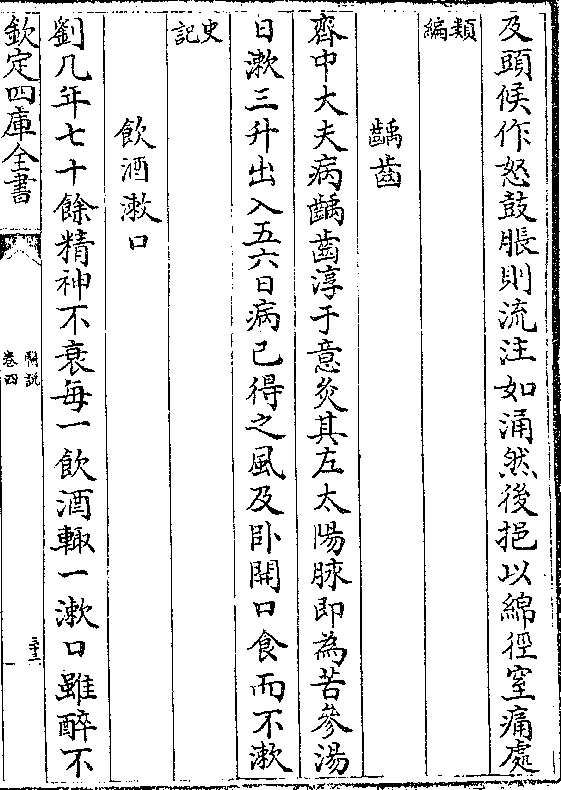 及頭候作怒鼓脹則流注如涌然後挹以綿徑窒痛處
類編
齲齒
齊中大夫病齲齒淳于意灸其左太陽脉即為苦參湯
日漱三升出入五六日病已得之風及卧開口食而不漱
史記
飲酒漱口
劉几年七十餘精神不衰每一飲酒輙一漱口雖醉不
欽定四庫全書
醫說
卷四
三十二